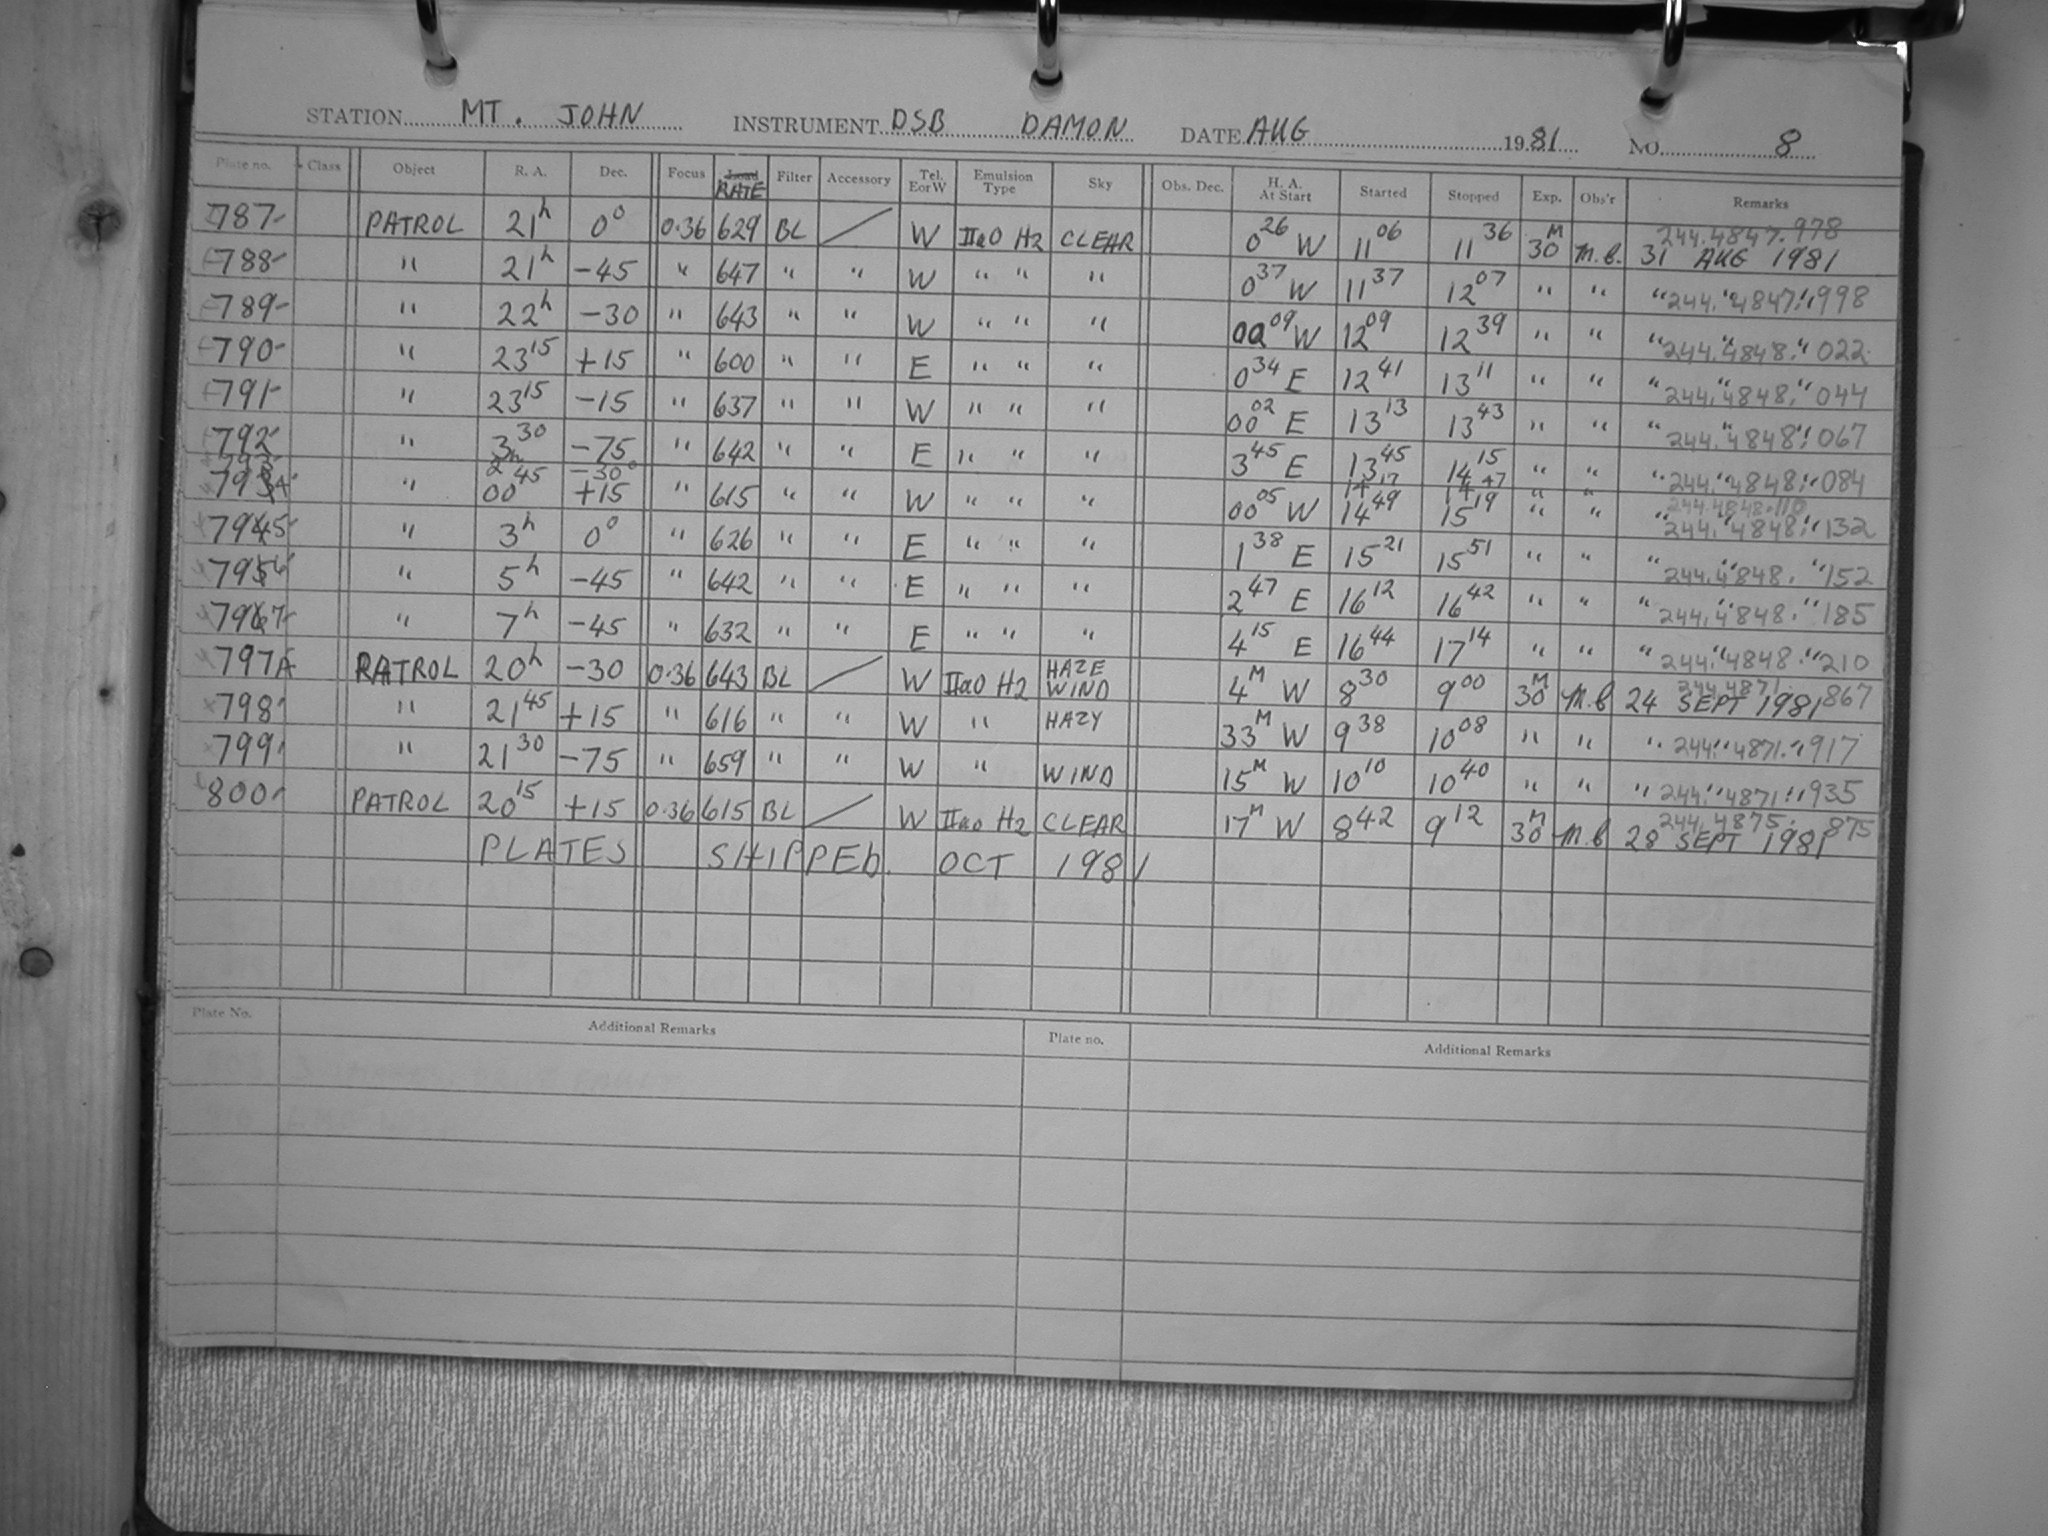 STATION MT. JOHN INSTRUMENT DSB DAMON DATE AUG 1981 NO. 8
Plate no. Class Object R. A. Dec. Focus RATE Filter Accessory Tel. E or W Emulsion Type Sky Obs. Dec. H. A. At Start Started Stopped Exp. Obs'r Remarks
244.4847.978
787 PATROL 21h 0° 0.36 629 BL / W IIaO H2 CLEAR 0 26 W 11 06 11 36 30M M.B. 31 AUG 1981
788 " 21h -45 " 647 " " W " " " 0 37 W 11 37 12 07 " " " 244."4847."998
789 " 22h -30 " 643 " " W " " " 00 09 W 12 09 12 39 " " " 244."4848." 022
790 " 23 15 +15 " 600 " " E " " " 0 34 E 12 41 13 11 " " " 244."4848." 044
791 " 23 15 -15 " 637 " " W " " " 00 02 E 13 13 13 43 " " " 244."4848." 067
792 " 3 30 -75 " 642 " " E " " " 3 45 E 13 45 14 15 " " " 244."4848."084
793 2h 45 -30° 14 17 14 47 " " 244.4848.110
794 " 00 +15 " 615 " " W " " " 00 05 W 14 49 15 19 " " " 244."4848."132
795 " 3h 0° " 626 " " E " " " 1 38 E 15 21 15 51 " " " 244."4848."152
796 " 5h -45 " 642 " " E " " " 2 47 E 16 12 16 42 " " " 244."4848."185
797 " 7h -45 " 632 " " E " " " 4 15 E 16 44 17 14 " " " 244."4848."210
797A PATROL 20h -30 0.36 643 BL / W IIaO H2 HAZE WIND 4M W 8 30 9 00 30M M.B 24 SEPT 1981 244.4871.867
798 " 21 45 +15 " 616 " " W " HAZY 33M W 9 38 10 08 " " " 244."4871."917
799 " 21 30 -75 " 659 " " W " WIND 15M W 10 10 10 40 " " " 244."4871."935
800 PATROL 20 15 +15 0.36 615 BL / W IIaO H2 CLEAR 17M W 8 42 9 12 30M M.B 28 SEPT 1981 244.4875.875
PLATES SHIPPED. OCT 1981
Plate No. Additional Remarks Plate no. Additional Remarks